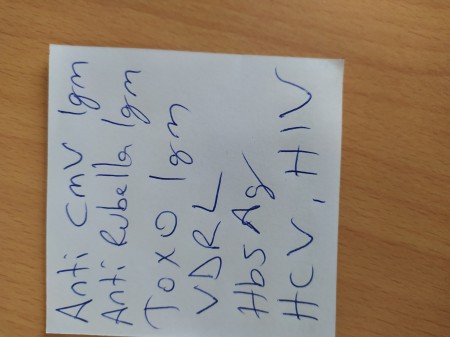 Anti CMV Igm
Anti Rubella Igm
Toxo Igm
VDRL
HbsAg
HCV, HIV